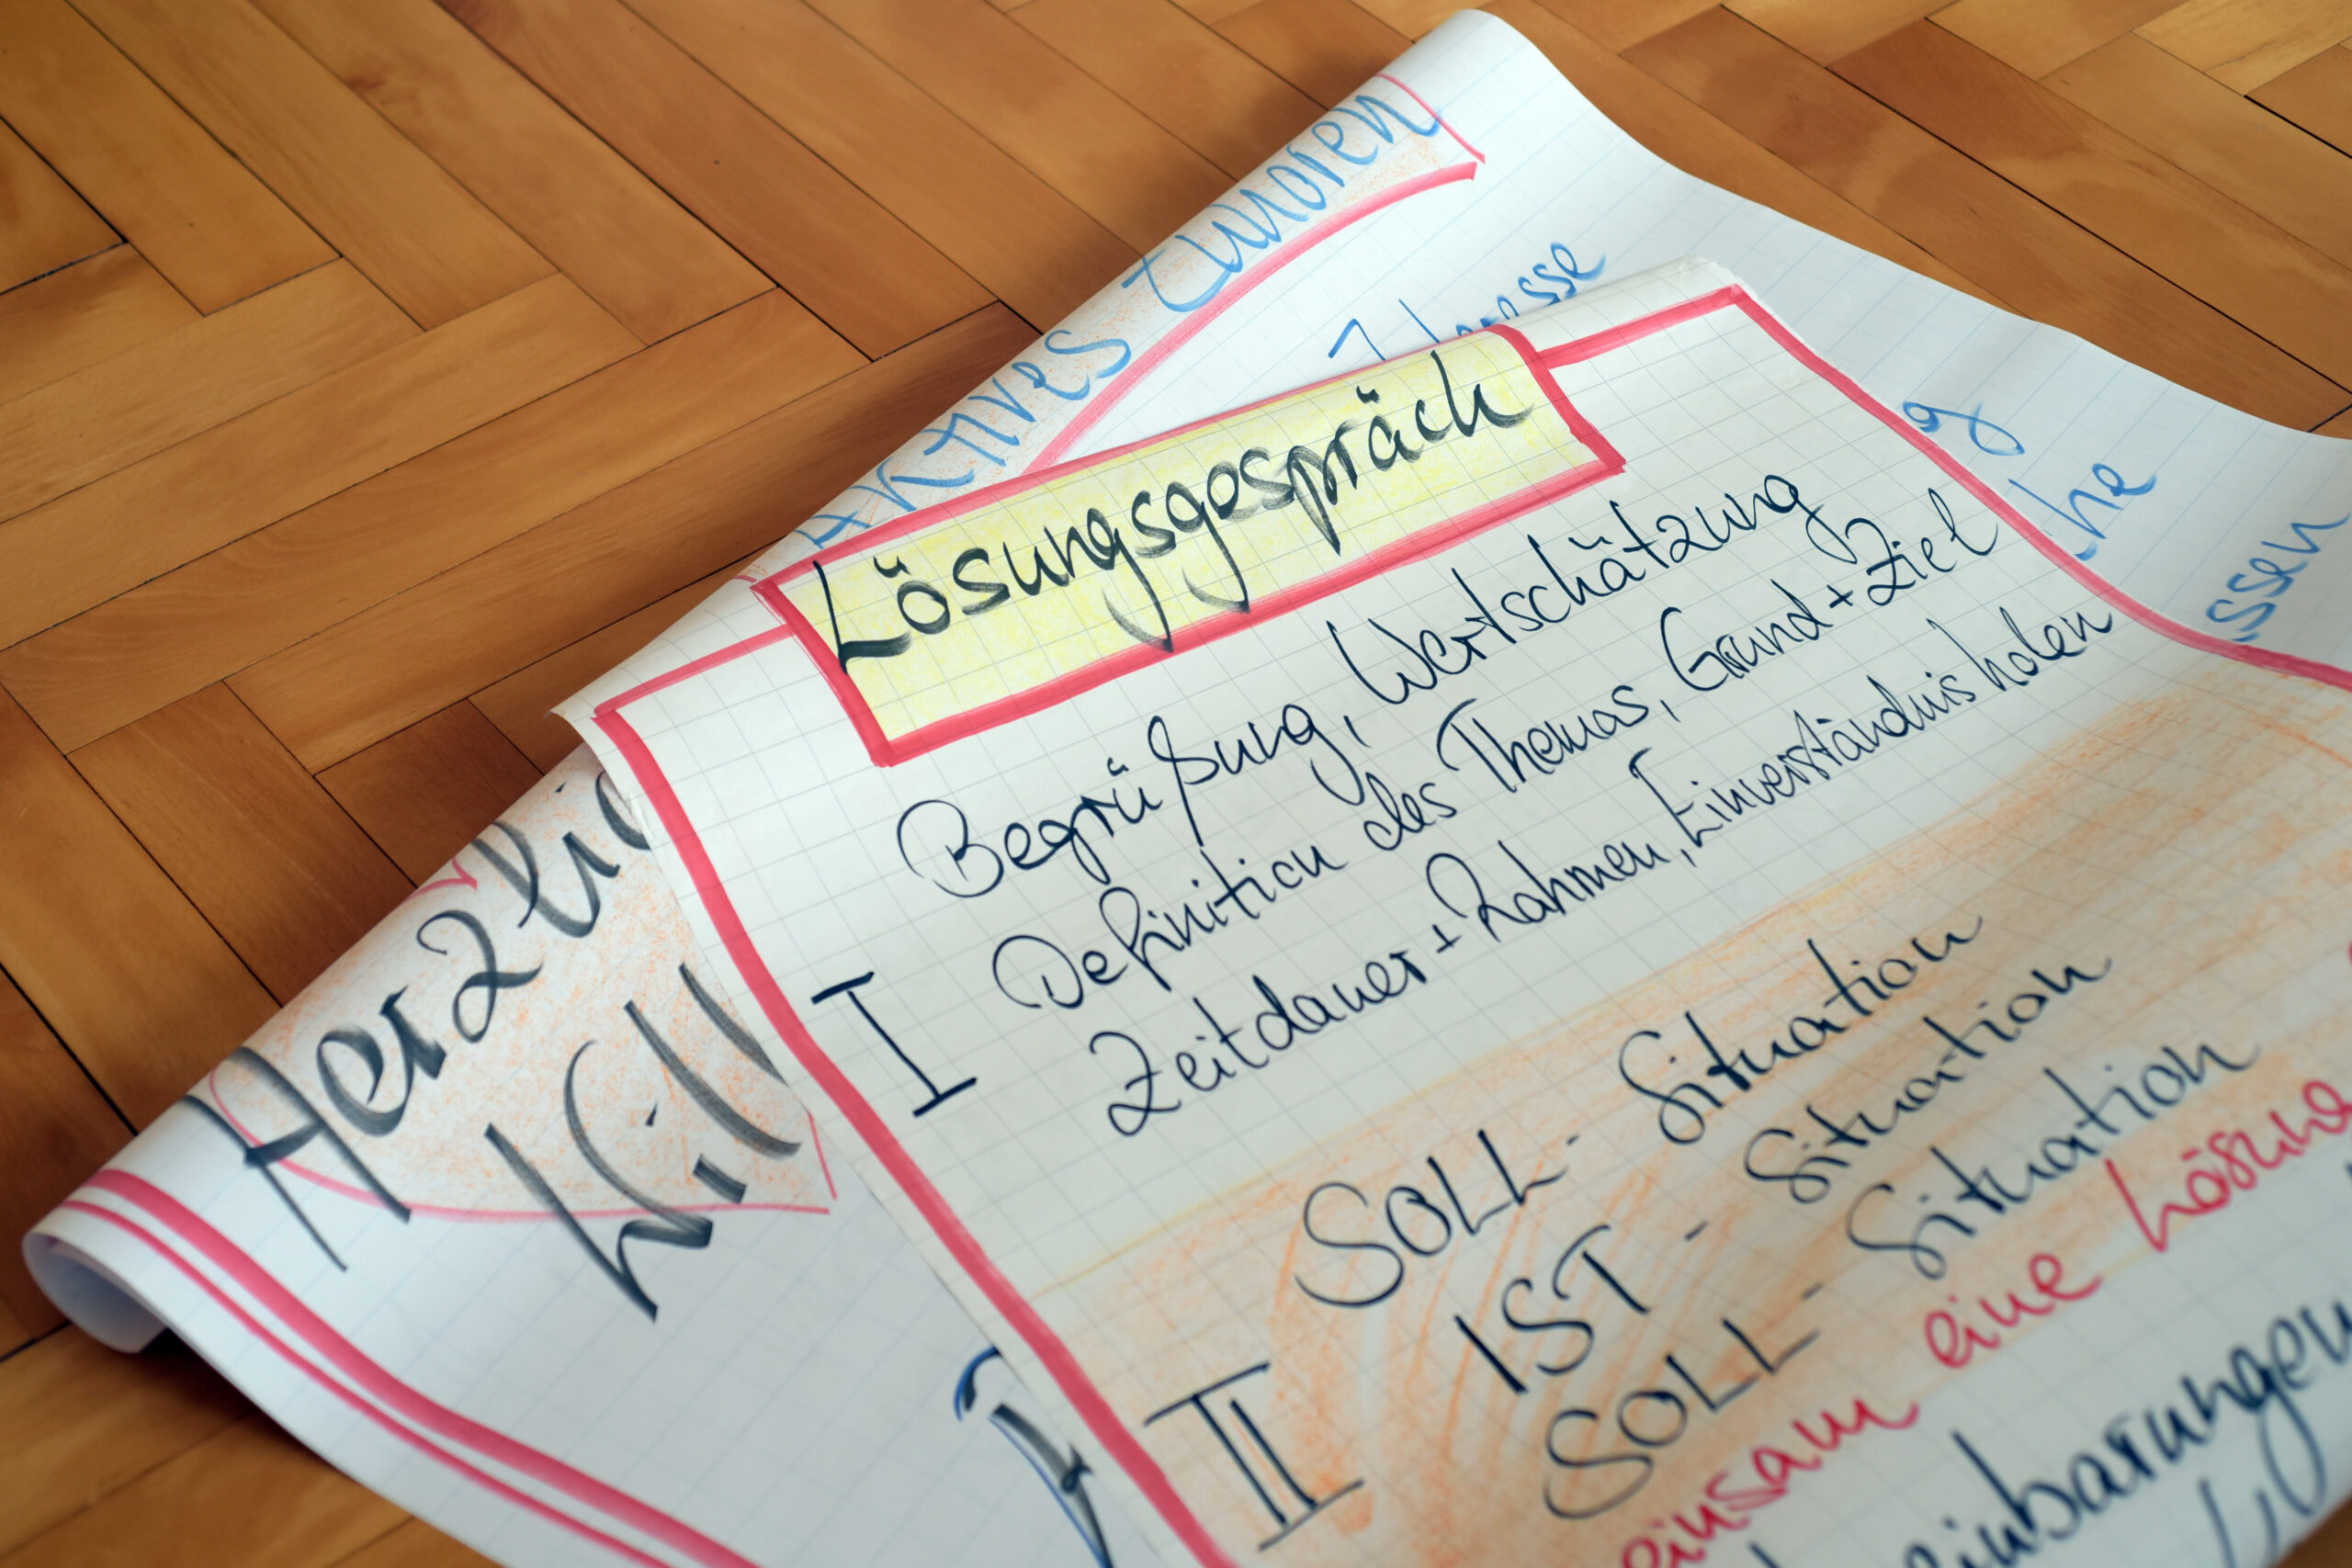 Aktives Zuhören
Lösungsgespräch
I
Begrüßung, Wertschätzung
Definition des Themas, Grund + Ziel
Zeitdauer + Rahmen, Einverständnis holen
II
SOLL - Situation
IST - Situation
SOLL - Situation
einsam eine Lösung
einbarungen
Herzlic
Will